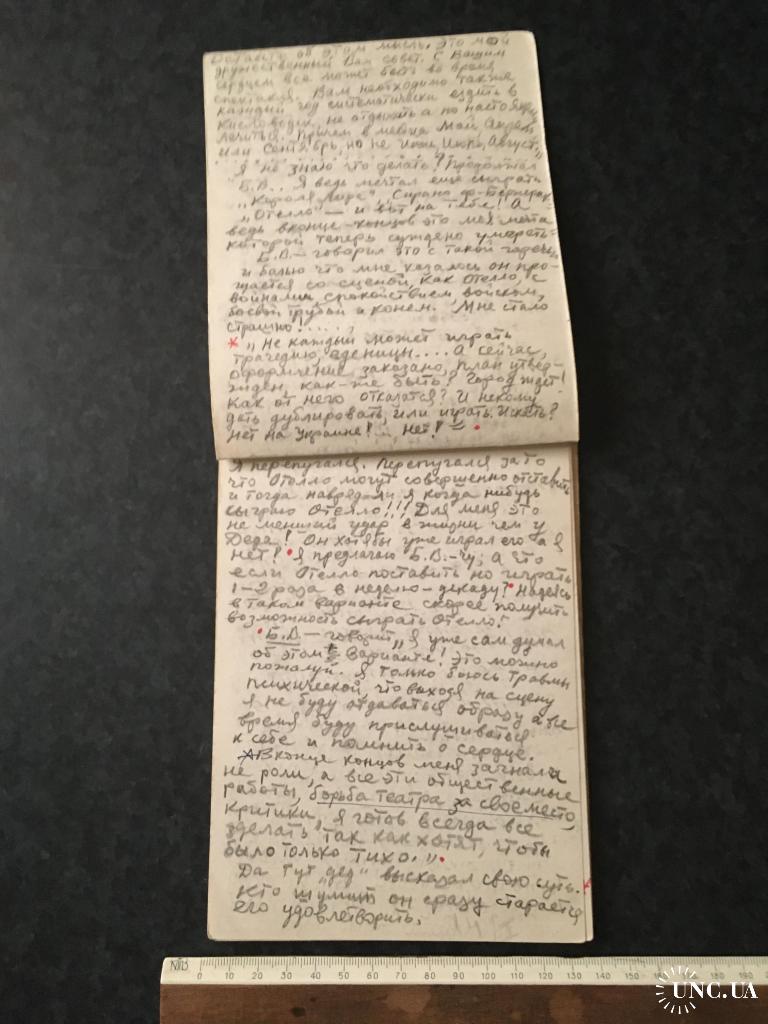 оставить об этом мысль. Это мой
дружественный Вам совет. С Вашим
сердцем все может быть во время
спектакля. Вам необходимо также
каждый год систематически ездить в
Кисловодск, не отдыхать а по настоящему
лечиться. Причем в месяца Май, Апрель
или Сентябрь, но не Июнь, Июль, Август."
"Я не знаю что делать? Продолжал
Б.В.. Я ведь мечтал еще сыграть
"Короля Лира", Сирано ф-Бержерак,
"Отелло" — и вот на тебе! А
ведь вконце-концов это моя мечта
которой теперь суждено умереть.
Б.В. — говорил это с такой горечью
и болью что мне казалось он про-
щается со сценой, как Отелло, с
войнами, спокойствием, войском,
боевой трубой и конем. Мне стало
страшно.....
"Не каждый может играть
трагедию, еденицы.... А сейчас,
оформление заказано, план утвер-
жден, как-же быть? Город ждет!
Как от него отказатся? И некому
дать дублировать, или играть. Искать?
Нет на Украине! .. Нет! —
Я перепугался. Перепугался за то
что Отелло могут совершенно отставить
и тогда наврядли я когда нибудь
сыграю Отелло!!! Для меня это
не менший удар в жизни чем у
Деда! Он хотя бы уже играл его а я
нет! Я предлагаю Б.В.-чу; а что
если Отелло поставить но играть
1–2 раза в неделю-декаду? Надеясь
в таком варианте скорее получить
возможность сыграть Отелло.
Б.В. — говорит "Я уже сам думал
об этом варианте! Это можно
пожалуй. Я только боюсь травмы
психической, что выходя на сцену
я не буду отдаваться образу а все
время буду прислушиваться
к себе и помнить о сердце.
А вконце концов меня загнали
не роли, а все эти общественные
работы, борьба театра за свое место,
критики, я готов всегда все
зделать, так как хотят, чтобы
было только тихо."
Да тут "дед" высказал свою суть.
Кто шумит он сразу старается
его удовлетворить.
0 10 20 30 40 50 60 70 80 90 100 110 120 130 140 150 160 170 180 190
UNC.UA